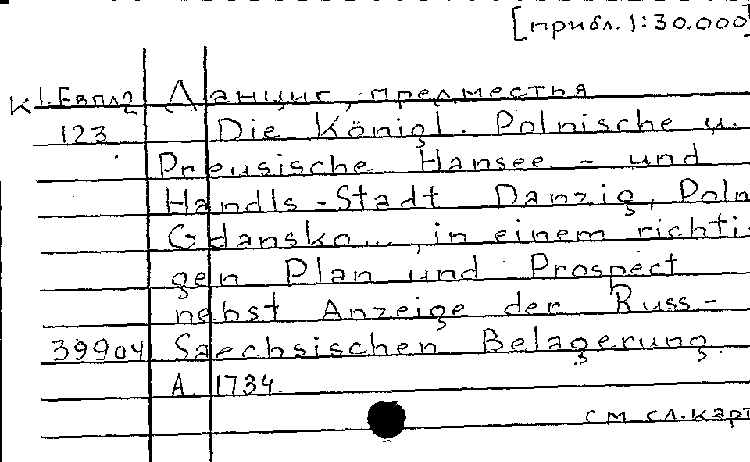 [прибл. 1:30.000]
К 1.Евпл2 Данциг, предместья
123 Die Königl. Polnische u.
Preusische Hansee - und
Handls-Stadt Danzig, Poln
Gdansko..., in einem richti-
gen Plan und Prospect
nebst Anzeige der Russ-
39904 Saechsischen Belagerung
A. 1734
см сл.карт